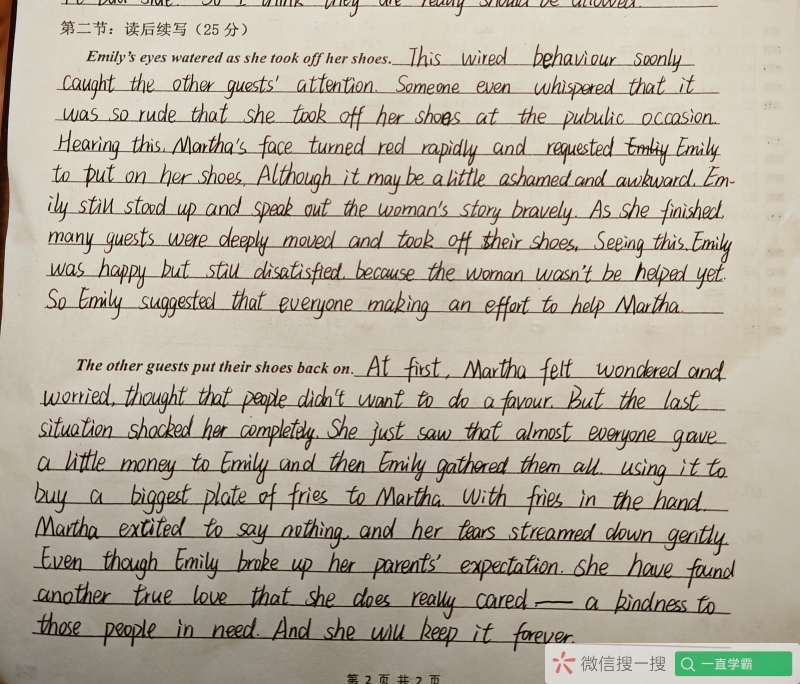 第二节：读后续写（25 分）
Emily's eyes watered as she took off her shoes. This wired behaviour soonly
caught the other guests' attention. Someone even whispered that it
was so rude that she took off her shoes at the pubulic occasion.
Hearing this, Martha's face turned red rapidly and requested Emliy Emily
to put on her shoes. Although it may be a little ashamed and awkward, Em-
ily still stood up and speak out the woman's story bravely. As she finished,
many guests were deeply moved and took off their shoes. Seeing this, Emily
was happy but still disatisfied, because the woman wasn't be helped yet.
So Emily suggested that everyone making an effort to help Martha.
The other guests put their shoes back on. At first, Martha felt wondered and
worried, thought that people didn't want to do a favour. But the last
situation shocked her completely. She just saw that almost everyone gave
a little money to Emily and then Emily gathered them all, using it to
buy a biggest plate of fries to Martha. With fries in the hand,
Martha extited to say nothing, and her tears streamed down gently.
Even though Emily broke up her parents' expectation. She have found
another true love that she does really cared — a kindness to
those people in need. And she will keep it forever.
第 2 页 共 2 页
微信搜一搜
一直学霸